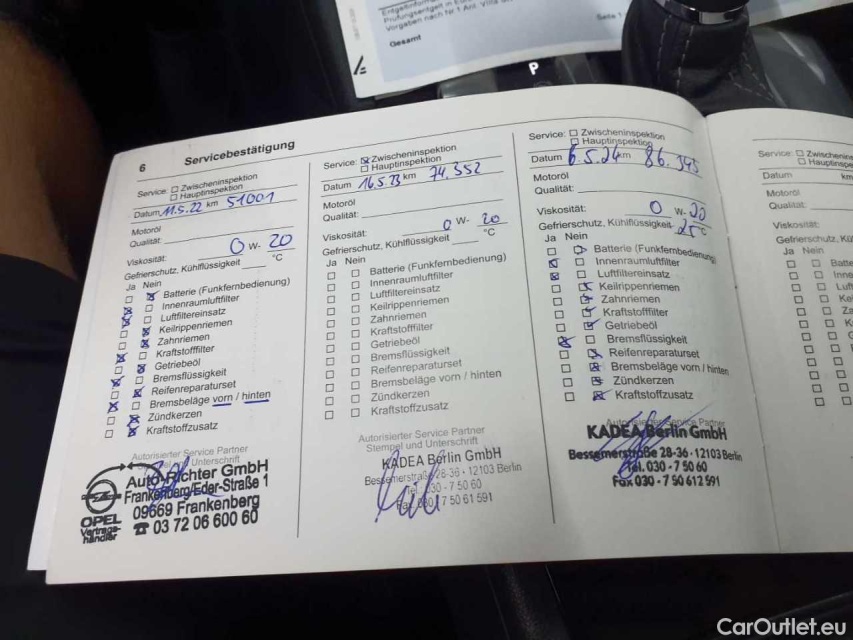 Gesamt
Seite 1
P
6 Servicebestätigung
Service: Zwischeninspektion
Hauptinspektion
Datum 11.5.22 km 51001
Motoröl
Qualität:
Viskosität: 0 W- 20
Gefrierschutz, Kühlflüssigkeit °C
Ja Nein
Batterie (Funkfernbedienung)
Innenraumluftfilter
Luftfiltereinsatz
Keilrippenriemen
Zahnriemen
Kraftstofffilter
Getriebeöl
Bremsflüssigkeit
Reifenreparaturset
Bremsbeläge vorn / hinten
Zündkerzen
Kraftstoffzusatz
Autorisierter Service Partner
Stempel und Unterschrift
Auto-Richter GmbH
Frankenberg/Eder-Straße 1
09669 Frankenberg
☎ 03 72 06 600 60
OPEL
Vertrags-
händler
Service: Zwischeninspektion
Hauptinspektion
Datum 16.5.23 km 74.352
Motoröl
Qualität:
Viskosität: 0 W- 20
Gefrierschutz, Kühlflüssigkeit °C
Ja Nein
Batterie (Funkfernbedienung)
Innenraumluftfilter
Luftfiltereinsatz
Keilrippenriemen
Zahnriemen
Kraftstofffilter
Getriebeöl
Bremsflüssigkeit
Reifenreparaturset
Bremsbeläge vorn / hinten
Zündkerzen
Kraftstoffzusatz
Autorisierter Service Partner
Stempel und Unterschrift
KADEA Berlin GmbH
Bessemerstraße 28-36 · 12103 Berlin
Tel. 030 - 7 50 60
Fax 030 - 7 50 61 591
Service: Zwischeninspektion
Hauptinspektion
Datum 6.5.24 km 86.345
Motoröl
Qualität:
Viskosität: 0 W- 20
Gefrierschutz, Kühlflüssigkeit -25°C
Ja Nein
Batterie (Funkfernbedienung)
Innenraumluftfilter
Luftfiltereinsatz
Keilrippenriemen
Zahnriemen
Kraftstofffilter
Getriebeöl
Bremsflüssigkeit
Reifenreparaturset
Bremsbeläge vorn / hinten
Zündkerzen
Kraftstoffzusatz
Autorisierter Service Partner
KADEA Berlin GmbH
Bessemerstraße 28-36 · 12103 Berlin
Tel. 030 - 7 50 60
Fax 030 - 7 50 612 591
Service: Zwischenins
Hauptinspek
Datum km
Motoröl
Qualität:
Viskosität:
Gefrierschutz, Kü
Ja Nein
CarOutlet.eu